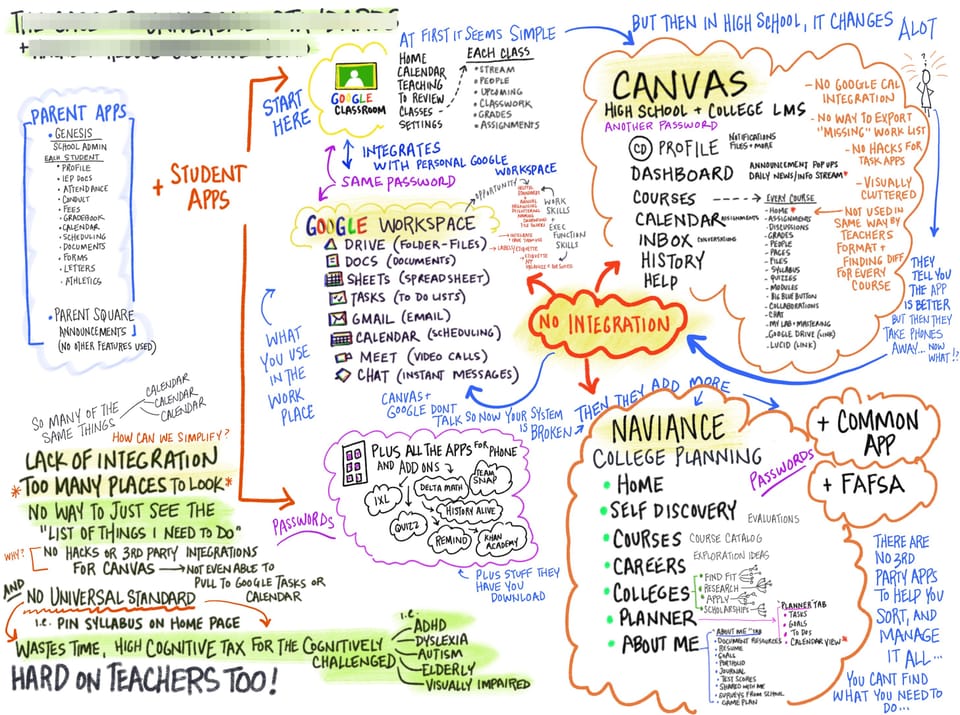 AT FIRST IT SEEMS SIMPLE
BUT THEN IN HIGH SCHOOL, IT CHANGES ALOT
PARENT APPS
• GENESIS
SCHOOL ADMIN
EACH STUDENT
* PROFILE
* IEP DOCS
* ATTENDANCE
* CONDUIT
* FEES
* GRADEBOOK
* CALENDAR
* SCHEDULING
* DOCUMENTS
* FORMS
* LETTERS
* ATHLETICS
• PARENT SQUARE
ANNOUNCEMENTS
(NO OTHER FEATURES USED)
+ STUDENT APPS
START HERE
GOOGLE CLASSROOM
HOME
CALENDAR
TEACHING
TO REVIEW
CLASSES
SETTINGS
EACH CLASS
* STREAM
* PEOPLE
* UPCOMING
* CLASSWORK
* GRADES
* ASSIGNMENTS
INTEGRATES
WITH PERSONAL GOOGLE
WORKSPACE
SAME PASSWORD
GOOGLE WORKSPACE
DRIVE (FOLDER-FILES)
DOCS (DOCUMENTS)
SHEETS (SPREADSHEET)
TASKS (TO DO LISTS)
GMAIL (EMAIL)
CALENDAR (SCHEDULING)
MEET (VIDEO CALLS)
CHAT (INSTANT MESSAGES)
OPPORTUNITY
WORK
SKILLS
+
EXEC
FUNCTION
SKILLS
WHAT
YOU USE
IN THE
WORK
PLACE
CANVAS +
GOOGLE DONT
TALK SO NOW YOUR SYSTEM
IS BROKEN
NO INTEGRATION
CANVAS
HIGH SCHOOL + COLLEGE LMS
ANOTHER PASSWORD
CD PROFILE NOTIFICATIONS
FILES + MORE
DASHBOARD ANNOUNCEMENT POP UPS
DAILY NEWS/INFO STREAM *
COURSES
CALENDAR ASSIGNMENTS
INBOX CONVERSATIONS
HISTORY
HELP
EVERY COURSE
- HOME *
- ASSIGNMENTS
- DISCUSSIONS
- GRADES
- PEOPLE
- PAGES
- FILES
- SYLLABUS
- QUIZZES
- MODULES
- BIG BLUE BUTTON
- COLLABORATIONS
- CHAT
- MY LAB + MASTERING
- GOOGLE DRIVE (LINK)
- LUCID (LINK)
- NO GOOGLE CAL
INTEGRATION
- NO WAY TO EXPORT
"MISSING" WORK LIST
- NO HACKS FOR
TASK APPS
- VISUALLY
CLUTTERED
NOT USED IN
SAME WAY BY
TEACHERS
FORMAT +
FINDING DIFF
FOR EVERY
COURSE
THEY
TELL YOU
THE APP
IS BETTER
BUT THEN THEY
TAKE PHONES
AWAY... NOW
WHAT!?
SO MANY OF THE
SAME THINGS
CALENDAR
CALENDAR
CALENDAR
HOW CAN WE SIMPLIFY?
LACK OF INTEGRATION
* TOO MANY PLACES TO LOOK *
NO WAY TO JUST SEE THE
"LIST OF THINGS I NEED TO DO"
WHY?
NO HACKS OR 3RD PARTY INTEGRATIONS
FOR CANVAS → NOT EVEN ABLE TO
PULL TO GOOGLE TASKS OR
CALENDAR
AND NO UNIVERSAL STANDARD
i.e. PIN SYLLABUS ON HOME PAGE
WASTES TIME, HIGH COGNITIVE TAX FOR THE COGNITIVELY
CHALLENGED
i.e.
ADHD
DYSLEXIA
AUTISM
ELDERLY
VISUALLY IMPAIRED
HARD ON TEACHERS TOO!
PASSWORDS
PLUS ALL THE APPS FOR PHONE
AND ADD ONS
IXL
DELTA MATH
TEAM SNAP
QUIZZ
HISTORY ALIVE
REMIND
KHAN ACADEMY
PLUS STUFF THEY
HAVE YOU
DOWNLOAD
THEN THEY ADD MORE
NAVIANCE
COLLEGE PLANNING
PASSWORDS
• HOME
• SELF DISCOVERY EVALUATIONS
• COURSES COURSE CATALOG
• CAREERS EXPLORATION IDEAS
• COLLEGES
• PLANNER
• ABOUT ME
* FIND FIT
* RESEARCH
* APPLY
* SCHOLARSHIPS
PLANNER TAB
• TASKS
• GOALS
• TO DOS
• CALENDAR VIEW *
"ABOUT ME" TAB
• DOCUMENT RESOURCES
• RESUME
• GOALL
• PORTFOLIO
• JOURNAL
• TEST SCORES
• SHARED WITH ME
• SURVEYS FROM SCHOOL
• GAME PLAN
+ COMMON
APP
+ FAFSA
THERE ARE
NO 3RD
PARTY APPS
TO HELP YOU
SORT, AND
MANAGE
IT ALL...
YOU CANT FIND
WHAT YOU NEED TO
DO...